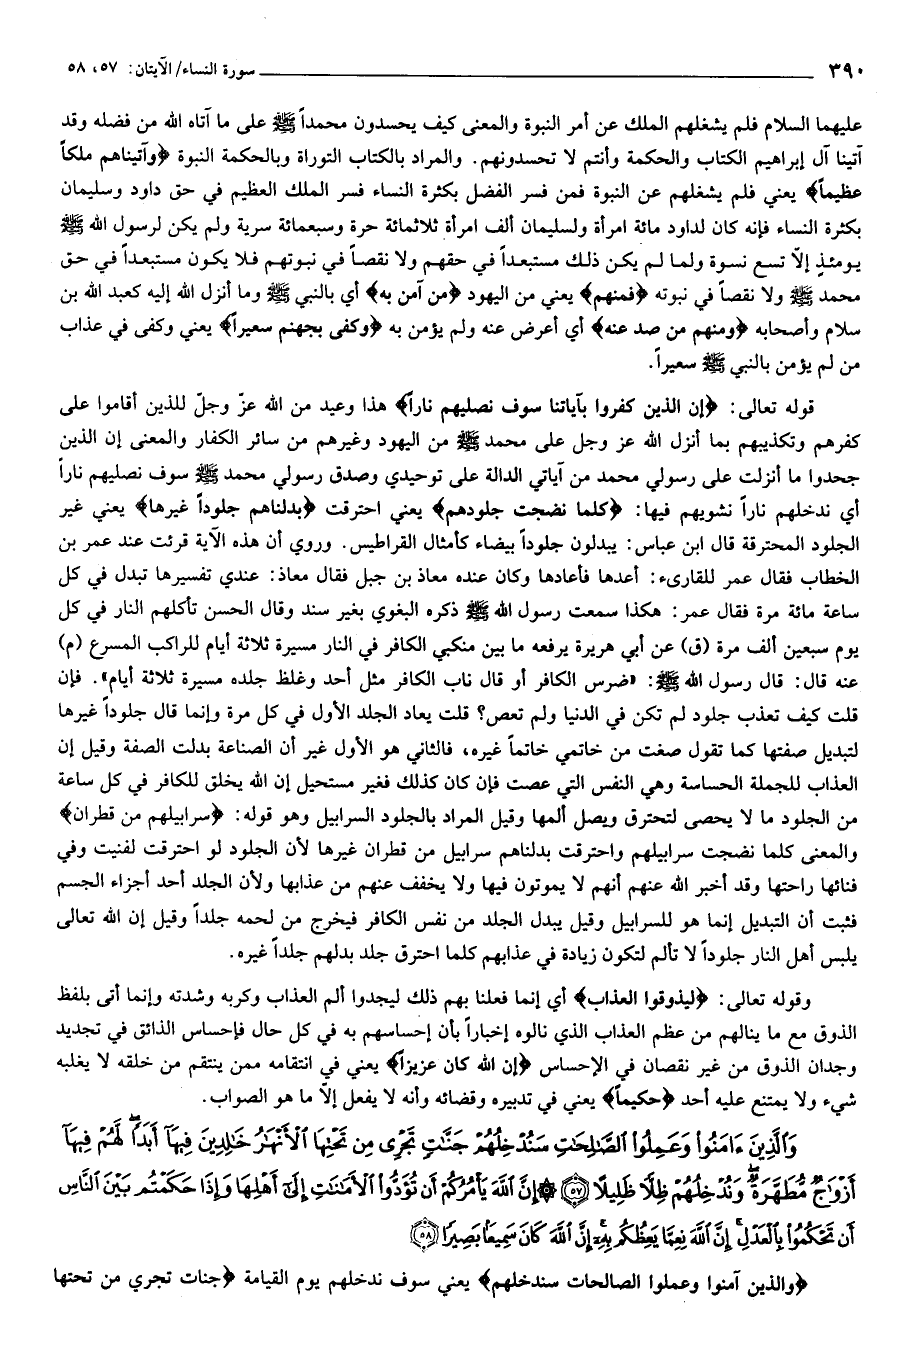 ٣٩٠ سورة النساء/ الآيتان: ٥٧، ٥٨
عليهما السلام فلم يشغلهم الملك عن أمر النبوة والمعنى كيف يحسدون محمداً ﷺ على ما آتاه الله من فضله وقد
آتينا آل إبراهيم الكتاب والحكمة وأنتم لا تحسدونهم. والمراد بالكتاب التوراة وبالحكمة النبوة ﴿وآتيناهم ملكاً
عظيماً﴾ يعني فلم يشغلهم عن النبوة فمن فسر الفضل بكثرة النساء فسر الملك العظيم في حق داود وسليمان
بكثرة النساء فإنه كان لداود مائة امرأة ولسليمان ألف امرأة ثلاثمائة حرة وسبعمائة سرية ولم يكن لرسول الله ﷺ
يومئذٍ إلاّ تسع نسوة ولما لم يكن ذلك مستبعداً في حقهم ولا نقصاً في نبوتهم فلا يكون مستبعداً في حق
محمد ﷺ ولا نقصاً في نبوته ﴿فمنهم﴾ يعني من اليهود ﴿من آمن به﴾ أي بالنبي ﷺ وما أنزل الله إليه كعبد الله بن
سلام وأصحابه ﴿ومنهم من صد عنه﴾ أي أعرض عنه ولم يؤمن به ﴿وكفى بجهنم سعيراً﴾ يعني وكفى في عذاب
من لم يؤمن بالنبي ﷺ سعيراً.
قوله تعالى: ﴿إن الذين كفروا بآياتنا سوف نصليهم ناراً﴾ هذا وعيد من الله عزّ وجلّ للذين أقاموا على
كفرهم وتكذيبهم بما أنزل الله عز وجل على محمد ﷺ من اليهود وغيرهم من سائر الكفار والمعنى إن الذين
جحدوا ما أنزلت على رسولي محمد من آياتي الدالة على توحيدي وصدق رسولي محمد ﷺ سوف نصليهم ناراً
أي ندخلهم ناراً نشويهم فيها: ﴿كلما نضجت جلودهم﴾ يعني احترقت ﴿بدلناهم جلوداً غيرها﴾ يعني غير
الجلود المحترقة قال ابن عباس: يبدلون جلوداً بيضاء كأمثال القراطيس. وروي أن هذه الآية قرئت عند عمر بن
الخطاب فقال عمر للقارىء: أعدها فأعادها وكان عنده معاذ بن جبل فقال معاذ: عندي تفسيرها تبدل في كل
ساعة مائة مرة فقال عمر: هكذا سمعت رسول الله ﷺ ذكره البغوي بغير سند وقال الحسن تأكلهم النار في كل
يوم سبعين ألف مرة (ق) عن أبي هريرة يرفعه ما بين منكبي الكافر في النار مسيرة ثلاثة أيام للراكب المسرع (م)
عنه قال: قال رسول الله ﷺ: «ضرس الكافر أو قال ناب الكافر مثل أحد وغلظ جلده مسيرة ثلاثة أيام». فإن
قلت كيف تعذب جلود لم تكن في الدنيا ولم تعص؟ قلت يعاد الجلد الأول في كل مرة وإنما قال جلوداً غيرها
لتبديل صفتها كما تقول صغت من خاتمي خاتماً غيره، فالثاني هو الأول غير أن الصناعة بدلت الصفة وقيل إن
العذاب للجملة الحساسة وهي النفس التي عصت فإن كان كذلك فغير مستحيل إن الله يخلق للكافر في كل ساعة
من الجلود ما لا يحصى لتحترق ويصل ألمها وقيل المراد بالجلود السرابيل وهو قوله: ﴿سرابيلهم من قطران﴾
والمعنى كلما نضجت سرابيلهم واحترقت بدلناهم سرابيل من قطران غيرها لأن الجلود لو احترقت لفنيت وفي
فنائها راحتها وقد أخبر الله عنهم أنهم لا يموتون فيها ولا يخفف عنهم من عذابها ولأن الجلد أحد أجزاء الجسم
فثبت أن التبديل إنما هو للسرابيل وقيل يبدل الجلد من نفس الكافر فيخرج من لحمه جلداً وقيل إن الله تعالى
يلبس أهل النار جلوداً لا تألم لتكون زيادة في عذابهم كلما احترق جلد بدلهم جلداً غيره.
وقوله تعالى: ﴿ليذوقوا العذاب﴾ أي إنما فعلنا بهم ذلك ليجدوا ألم العذاب وكربه وشدته وإنما أتى بلفظ
الذوق مع ما ينالهم من عظم العذاب الذي نالوه إخباراً بأن إحساسهم به في كل حال فإحساس الذائق في تجديد
وجدان الذوق من غير نقصان في الإحساس ﴿إن الله كان عزيزاً﴾ يعني في انتقامه ممن ينتقم من خلقه لا يغلبه
شيء ولا يمتنع عليه أحد ﴿حكيماً﴾ يعني في تدبيره وقضائه وأنه لا يفعل إلاّ ما هو الصواب.
وَٱلَّذِينَ ءَامَنُوا۟ وَعَمِلُوا۟ ٱلصَّـٰلِحَـٰتِ سَنُدْخِلُهُمْ جَنَّـٰتٍ تَجْرِى مِن تَحْتِهَا ٱلْأَنْهَـٰرُ خَـٰلِدِينَ فِيهَآ أَبَدًا ۖ لَّهُمْ فِيهَآ
أَزْوَٰجٌ مُّطَهَّرَةٌ ۖ وَنُدْخِلُهُمْ ظِلًّا ظَلِيلًا ﴿٥٧﴾ ۞ إِنَّ ٱللَّهَ يَأْمُرُكُمْ أَن تُؤَدُّوا۟ ٱلْأَمَـٰنَـٰتِ إِلَىٰٓ أَهْلِهَا وَإِذَا حَكَمْتُم بَيْنَ ٱلنَّاسِ
أَن تَحْكُمُوا۟ بِٱلْعَدْلِ ۚ إِنَّ ٱللَّهَ نِعِمَّا يَعِظُكُم بِهِۦٓ ۗ إِنَّ ٱللَّهَ كَانَ سَمِيعًۢا بَصِيرًا ﴿٥٨﴾
﴿والذين آمنوا وعملوا الصالحات سندخلهم﴾ يعني سوف ندخلهم يوم القيامة ﴿جنات تجري من تحتها